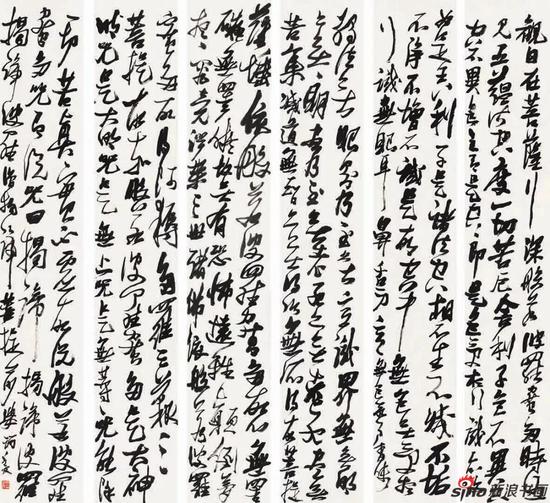 觀自在菩薩行深般若波羅蜜多時照
見五蘊皆空度一切苦厄舍利子色不異
空空不異色色即是空空即是色受想行識亦復
如是舍利子是諸法空相不生不滅不垢
不淨不增不減是故空中無色無受想
行識無眼耳鼻舌身意無色聲香味
觸法無眼界乃至無意識界無無
明亦無無明盡乃至無老死亦無老死盡無
苦集滅道無智亦無得以無所得故菩提
薩埵依般若波羅蜜多故心無罣
礙無罣礙故無有恐怖遠離顛倒夢
想究竟涅槃三世諸佛依般若波羅
蜜多故得阿耨多羅三藐三
菩提故知般若波羅蜜多是大神
咒是大明咒是無上咒是無等等咒能除
一切苦真實不虛故說般若波羅
蜜多咒即說咒曰揭諦揭諦波羅
揭諦波羅僧揭諦菩提薩婆訶
sina 新浪书画